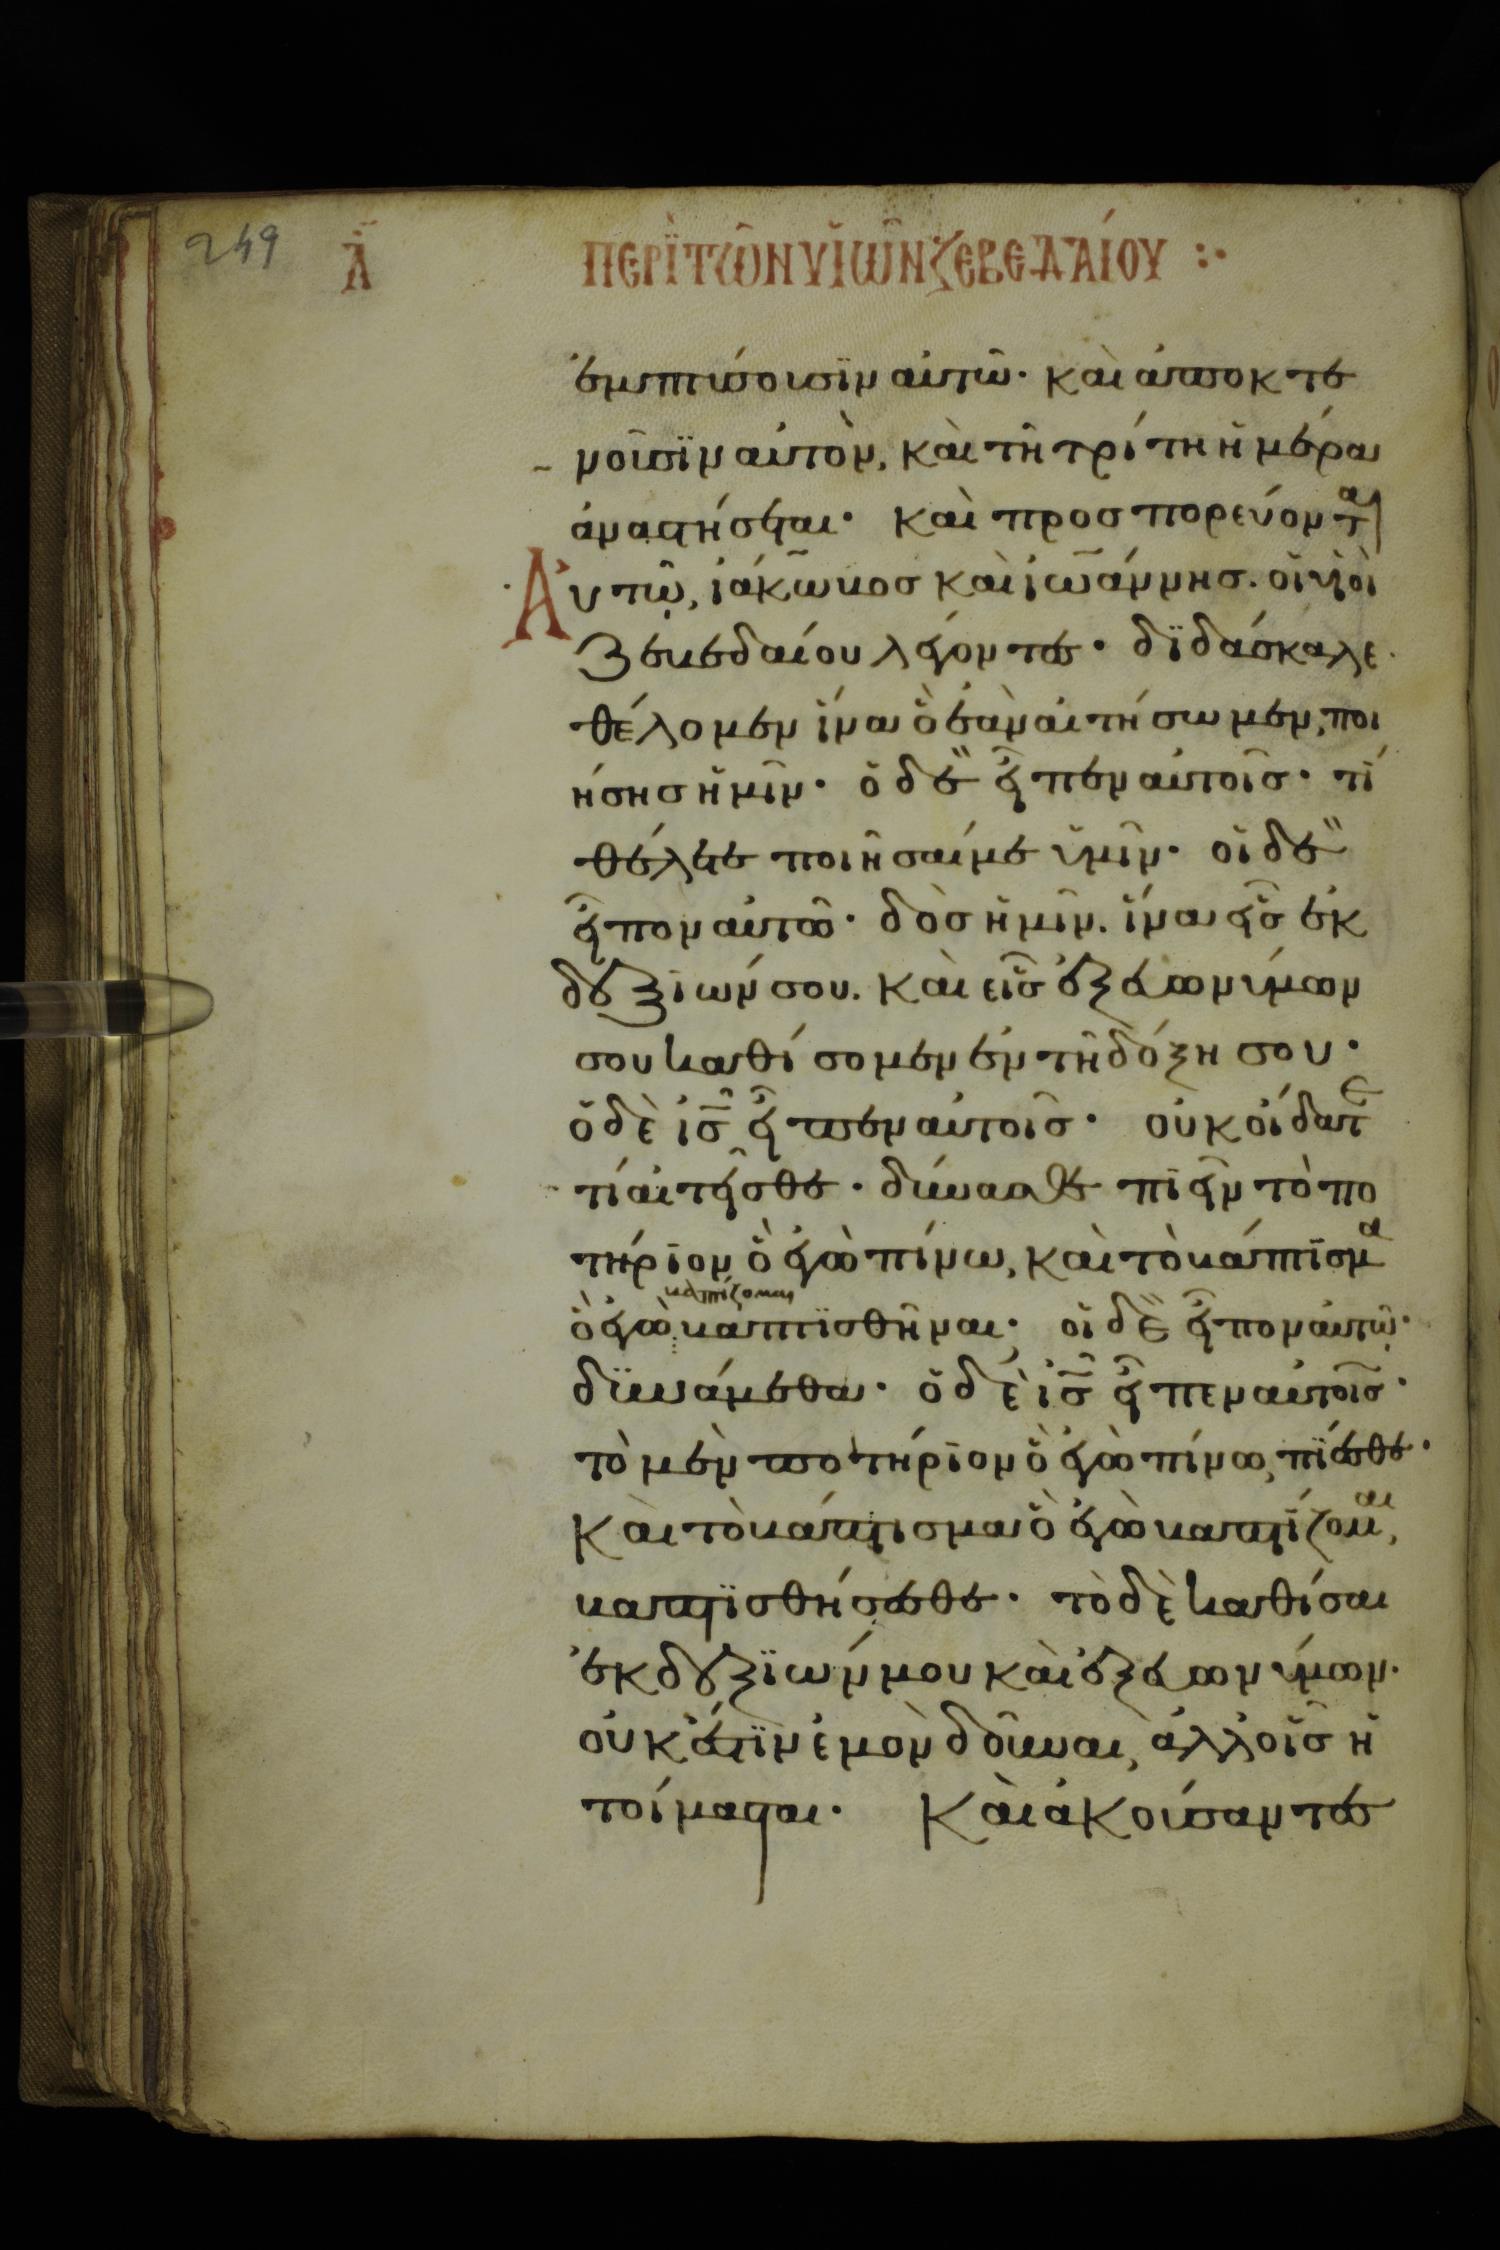 249 Λ̄ ΠΕΡῚ ΤΩ̂Ν ΥἹΩ̂Ν ΖΕΒΕΔΑΊΟΥ :·
ἐμπτύσουσϊν αὐτῶ· καὶ ἀποκτε
νοῦσϊν αὐτὸν, καὶ τῆ τρίτη ἡμέρα
ἀναστήσεται· καὶ προσπορεύοντα
Αὐτῷ, ϊάκωβοσ καὶ ϊωάννησ. οἱ υἱοὶ
Ζεβεδαίου λέγοντες· δϊδάσκαλε·
θέλομεν ἵνα ὃ ἐὰν αἰτήσωμεν, ποι
ήσησ ἡμῖν· ὁ δὲ εἶπεν αὐτοῖσ· τί
θέλετε ποιῆσαί με ὑμῖν· οἱ δὲ
εἶπον αὐτῶ· δὸσ ἡμῖν. ἵνα εἷσ ἐκ
δεξϊῶν σου. καὶ εἷσ ἐξ εὐωνύμων
σου καθίσομεν ἐν τῆ δόξη σου·
ὁ δὲ ἰσ̄ εἶπεν αὐτοῖσ· οὐκ οἴδατε
τί αἰτεῖσθε· δύνασθε πϊεῖν τὸ πο
τήρϊον ὃ ἐγὼ πίνω, καὶ τὸ βάπτϊσμα
βαπτίζομαι
ὃ ἐγὼ βαπτϊσθῆναι· οἱ δὲ εἶπον αὐτῷ·
δϋνάμεθα· ὁ δὲ ἰσ̄ εἶπεν αὐτοῖσ·
τὸ μὲν ποτήρϊον ὃ ἐγὼ πίνω, πϊέσθε·
καὶ τὸ βάπτισμα ὃ ἐγὼ βαπτίζομαι,
βαπτϊσθήσεσθε· τὸ δὲ καθίσαι
ἐκ δεξϊῶν μου καὶ ἐξ εὐωνύμων·
οὐκ ἔστϊν ἐμὸν δοῦναι, ἀλλ' οἷσ ἡ
τοίμασται· Καὶ ἀκούσαντες